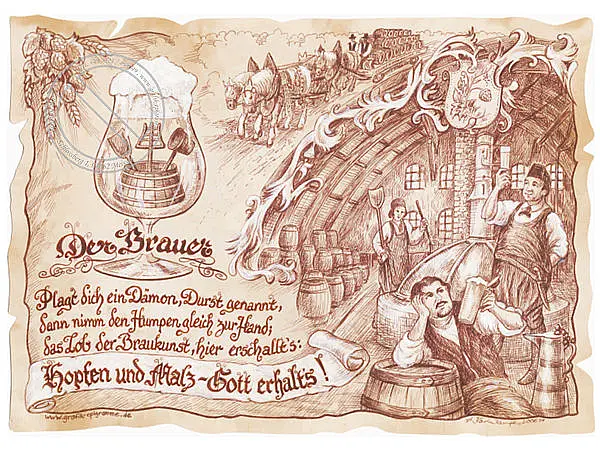 Der Brauer
Plagt Dich ein Dämon, Durst genannt,
dann nimm den Humpen gleich zur Hand;
das Lob der Braukunst, hier erschallt's:
Hopfen und Malz - Gott erhalt's!